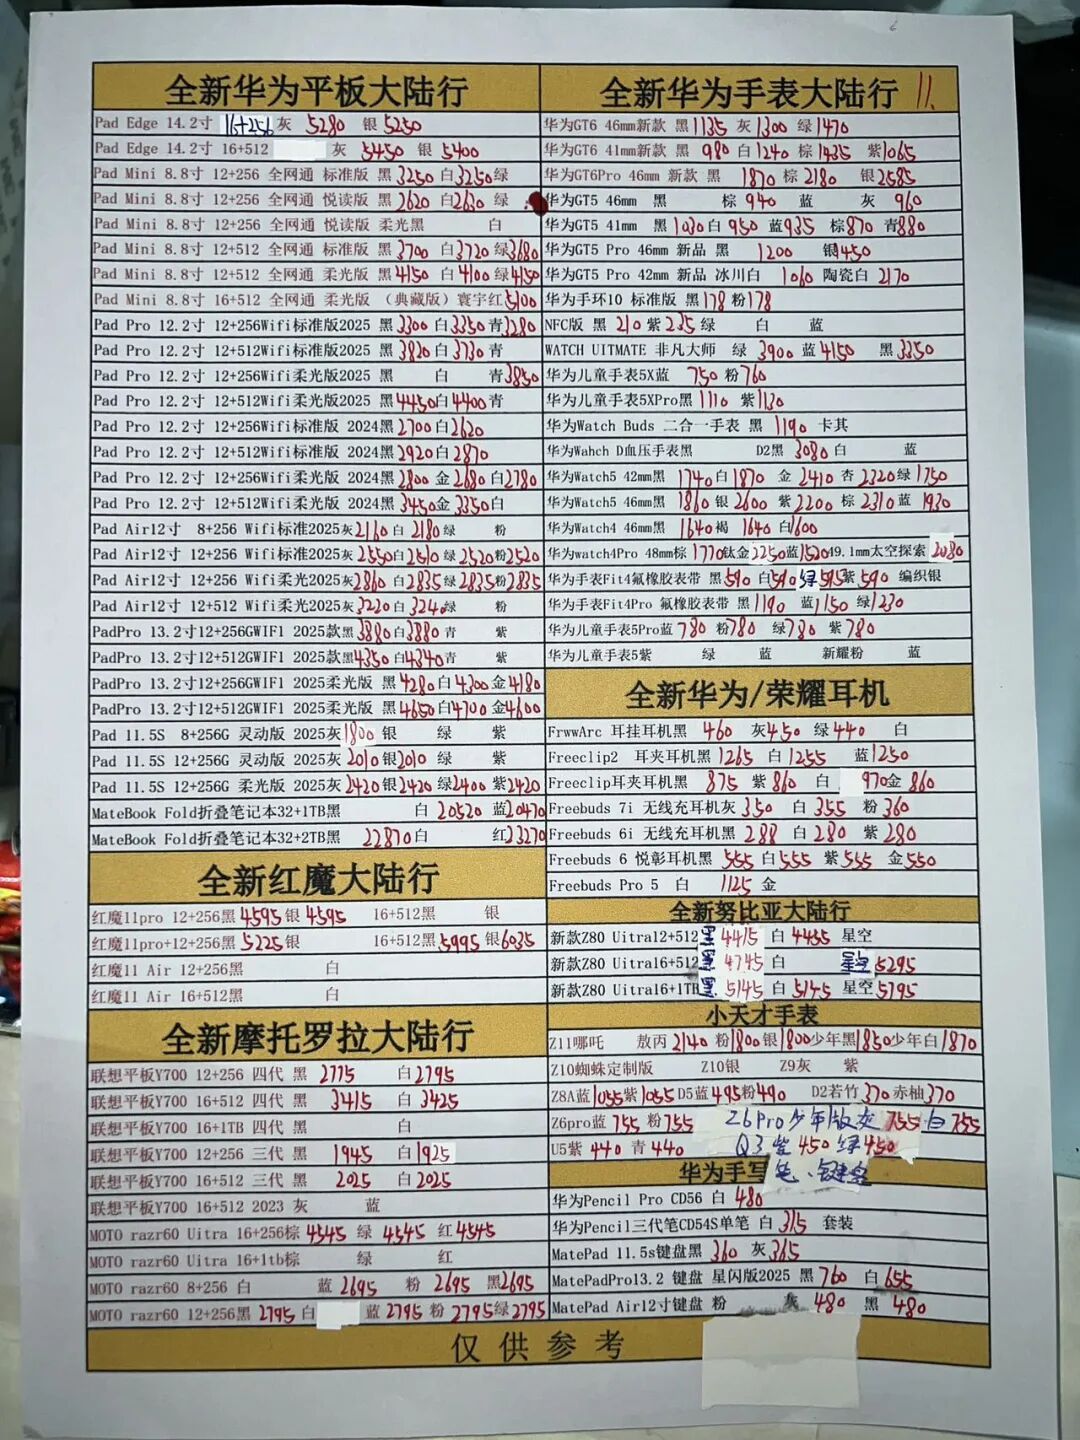 全新华为平板大陆行
Pad Edge 14.2寸 16+256 灰 5280 银 5250
Pad Edge 14.2寸 16+512 灰 5450 银 5400
Pad Mini 8.8寸 12+256 全网通 标准版 黑 3250 白 3250 绿
Pad Mini 8.8寸 12+256 全网通 悦读版 黑 2620 白 2630 绿
Pad Mini 8.8寸 12+256 全网通 悦读版 柔光黑 白
Pad Mini 8.8寸 12+512 全网通 标准版 黑 3700 白 3720 绿 3680
Pad Mini 8.8寸 12+512 全网通 柔光版 黑 4150 白 4100 绿 4150
Pad Mini 8.8寸 16+512 全网通 柔光版 （典藏版）寰宇红 5100
Pad Pro 12.2寸 12+256Wifi标准版2025 黑 3300 白 3350 青 3280
Pad Pro 12.2寸 12+512Wifi标准版2025 黑 3820 白 3730 青
Pad Pro 12.2寸 12+256Wifi柔光版2025 黑 白 青 3850
Pad Pro 12.2寸 12+512Wifi柔光版2025 黑 4450 白 4400 青
Pad Pro 12.2寸 12+256Wifi标准版 2024黑 2700 白 2620
Pad Pro 12.2寸 12+512Wifi标准版 2024黑 2920 白 2870
Pad Pro 12.2寸 12+256Wifi柔光版 2024黑 2800 金 2680 白 2780
Pad Pro 12.2寸 12+512Wifi柔光版 2024黑 3450 金 3350 白
Pad Air12寸 8+256 Wifi标准2025灰 2160 白 2180 绿 粉
Pad Air12寸 12+256 Wifi标准2025灰 2550 白 2510 绿 2520 粉 2520
Pad Air12寸 12+256 Wifi柔光2025灰 2860 白 2835 绿 2835 粉 2835
Pad Air12寸 12+512 Wifi柔光2025灰 3220 白 3240 绿 粉
PadPro 13.2寸12+256GWIF1 2025款黑 3880 白 3880 青 紫
PadPro 13.2寸12+512GWIF1 2025款黑 4350 白 4340 青 紫
PadPro 13.2寸12+256GWIF1 2025柔光版 黑 4280 白 4300 金 4180
PadPro 13.2寸12+512GWIF1 2025柔光版 黑 4650 白 4700 金 4600
Pad 11.5S 8+256G 灵动版 2025灰 1800 银 绿 紫
Pad 11.5S 12+256G 灵动版 2025灰 2010 银 2010 绿 紫
Pad 11.5S 12+256G 柔光版 2025灰 2420 银 2420 绿 2400 紫 2420
MateBook Fold折叠笔记本32+1TB黑 白 20520 蓝 20470
MateBook Fold折叠笔记本32+2TB黑 22870 白 红 23270
全新红魔大陆行
红魔11pro 12+256黑 4595 银 4595 16+512黑 银
红魔11pro+12+256黑 5225 银 16+512黑 5995 银 6035
红魔11 Air 12+256黑 白
红魔11 Air 16+512黑 白
全新摩托罗拉大陆行
联想平板Y700 12+256 四代 黑 2775 白 2795
联想平板Y700 16+512 四代 黑 3415 白 3425
联想平板Y700 16+1TB 四代 黑 白
联想平板Y700 12+256 三代 黑 1945 白 1925
联想平板Y700 16+512 三代 黑 2025 白 2025
联想平板Y700 16+512 2023 灰 蓝
MOTO razr60 Uitra 16+256棕 4545 绿 4545 红 4545
MOTO razr60 Uitra 16+1tb棕 绿 红
MOTO razr60 8+256 白 蓝 2695 粉 2695 黑 2695
MOTO razr60 12+256黑 2795 白 蓝 2795 粉 2795 绿 2795
全新华为手表大陆行 11.
华为GT6 46mm新款 黑 1135 灰 1300 绿 1470
华为GT6 41mm新款 黑 980 白 1240 棕 1435 紫 1065
华为GT6Pro 46mm 新款 黑 1870 棕 2180 银 2585
华为GT5 46mm 黑 棕 940 蓝 灰 960
华为GT5 41mm 黑 1030 白 950 蓝 935 棕 870 青 880
华为GT5 Pro 46mm 新品 黑 1200 银 1450
华为GT5 Pro 42mm 新品 冰川白 1060 陶瓷白 2170
华为手环10 标准版 黑 178 粉 178
NFC版 黑 210 紫 235 绿 白 蓝
WATCH UITMATE 非凡大师 绿 3900 蓝 4150 黑 3350
华为儿童手表5X蓝 750 粉 760
华为儿童手表5XPro黑 1110 紫 1130
华为Watch Buds 二合一手表 黑 1190 卡其
华为Wahch D血压手表黑 D2黑 3080 白 蓝
华为Watch5 42mm黑 1740 白 1870 金 2410 杏 2320 绿 1750
华为Watch5 46mm黑 1860 银 2600 紫 2200 棕 2310 蓝 1930
华为Watch4 46mm黑 1640 褐 1640 白 1600
华为watch4Pro 48mm棕 1770 钛金 2250 蓝 1520 49.1mm太空探索 2080
华为手表Fit4氟橡胶表带 黑 590 白 590 绿 595 紫 590 编织银
华为手表Fit4Pro 氟橡胶表带 黑 1190 蓝 1150 绿 1230
华为儿童手表5Pro蓝 780 粉 780 绿 780 紫 780
华为儿童手表5紫 绿 蓝 新耀粉 蓝
全新华为/荣耀耳机
FrwwArc 耳挂耳机黑 460 灰 450 绿 440 白
Freeclip2 耳夹耳机黑 1265 白 1255 蓝 1250
Freeclip耳夹耳机黑 875 紫 860 白 970 金 860
Freebuds 7i 无线充耳机灰 350 白 355 粉 360
Freebuds 6i 无线充耳机黑 288 白 280 紫 280
Freebuds 6 悦彰耳机黑 555 白 555 紫 555 金 550
Freebuds Pro 5 白 1125 金
全新努比亚大陆行
新款Z80 Uitra12+512 黑 4415 白 4455 星空
新款Z80 Uitra16+512 黑 4745 白 星空 5295
新款Z80 Uitra16+1TB 黑 5145 白 5145 星空 5195
小天才手表
Z11哪吒 敖丙 2140 粉 1800 银 1800 少年黑 1850 少年白 1870
Z10蜘蛛定制版 Z10银 Z9灰 紫
Z8A蓝 1055 紫 1055 D5蓝 495 粉 490 D2若竹 370 赤柚 370
Z6pro蓝 755 粉 755 Z6Pro少年版灰 755 白 755
U5紫 440 青 440 Q3紫 450 绿 450
华为手写笔、键盘
华为Pencil Pro CD56 白 480
华为Pencil三代笔CD54S单笔 白 315 套装
MatePad 11.5s键盘黑 360 灰 365
MatePadPro13.2 键盘 星闪版2025 黑 760 白 655
MatePad Air12寸键盘 粉 灰 480 黑 480
仅供参考